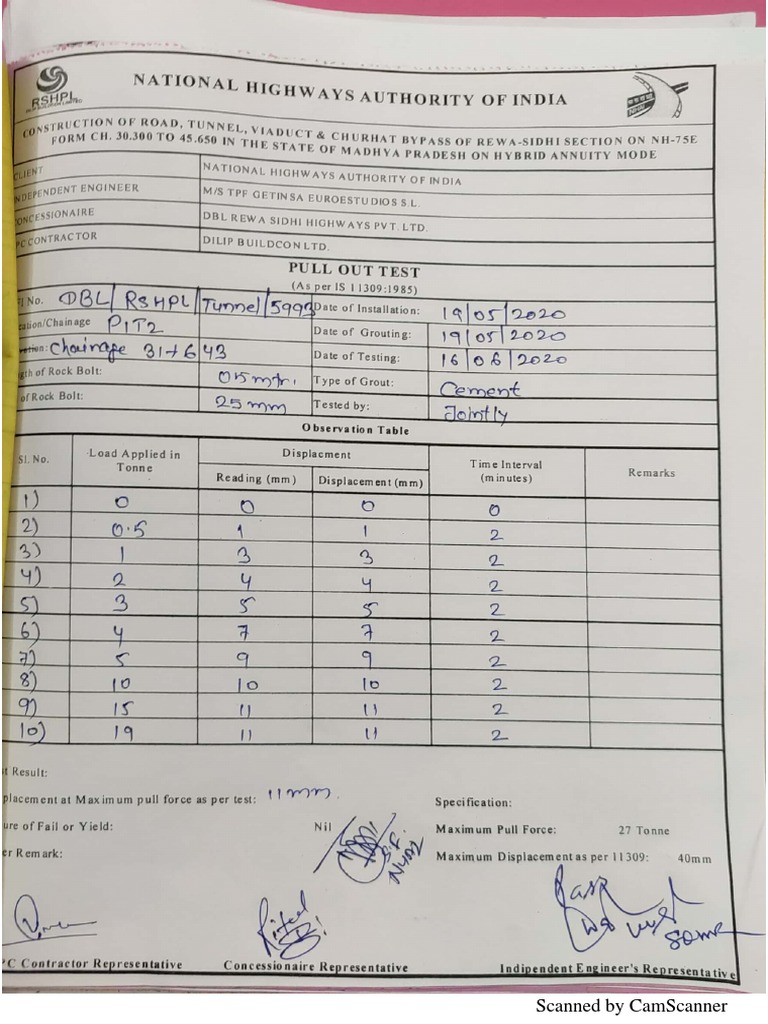 RSHPL
NATIONAL HIGHWAYS AUTHORITY OF INDIA
CONSTRUCTION OF ROAD, TUNNEL, VIADUCT & CHURHAT BYPASS OF REWA-SIDHI SECTION ON NH-75E
FORM CH. 30.300 TO 45.650 IN THE STATE OF MADHYA PRADESH ON HYBRID ANNUITY MODE
CLIENT NATIONAL HIGHWAYS AUTHORITY OF INDIA
NDEPENDENT ENGINEER M/S TPF GETINSA EUROESTUDIOS S.L.
CONCESSIONAIRE DBL REWA SIDHI HIGHWAYS PVT. LTD.
PC CONTRACTOR DILIP BUILDCON LTD.
PULL OUT TEST
(As per IS 11309:1985)
No. DBL/RSHPL/Tunnel/5993 Date of Installation: 19/05/2020
cation/Chainage P1T2 Date of Grouting: 19/05/2020
Chainage 31+643 Date of Testing: 16/06/2020
gth of Rock Bolt: 05 mtr. Type of Grout: Cement
of Rock Bolt: 25 mm Tested by: Jointly
Observation Table
Sl. No. Load Applied in Tonne Displacment Time Interval (minutes) Remarks
Reading (mm) Displacement (mm)
1) 0 0 0 0
2) 0.5 1 1 2
3) 1 3 3 2
4) 2 4 4 2
5) 3 5 5 2
6) 4 7 7 2
7) 5 9 9 2
8) 10 10 10 2
9) 15 11 11 2
10) 19 11 11 2
t Result:
placement at Maximum pull force as per test: 11 mm. Specification:
ure of Fail or Yield: Nil Maximum Pull Force: 27 Tonne
er Remark: Maximum Displacement as per 11309: 40mm
PC Contractor Representative Concessionaire Representative Indipendent Engineer's Representative
Scanned by CamScanner